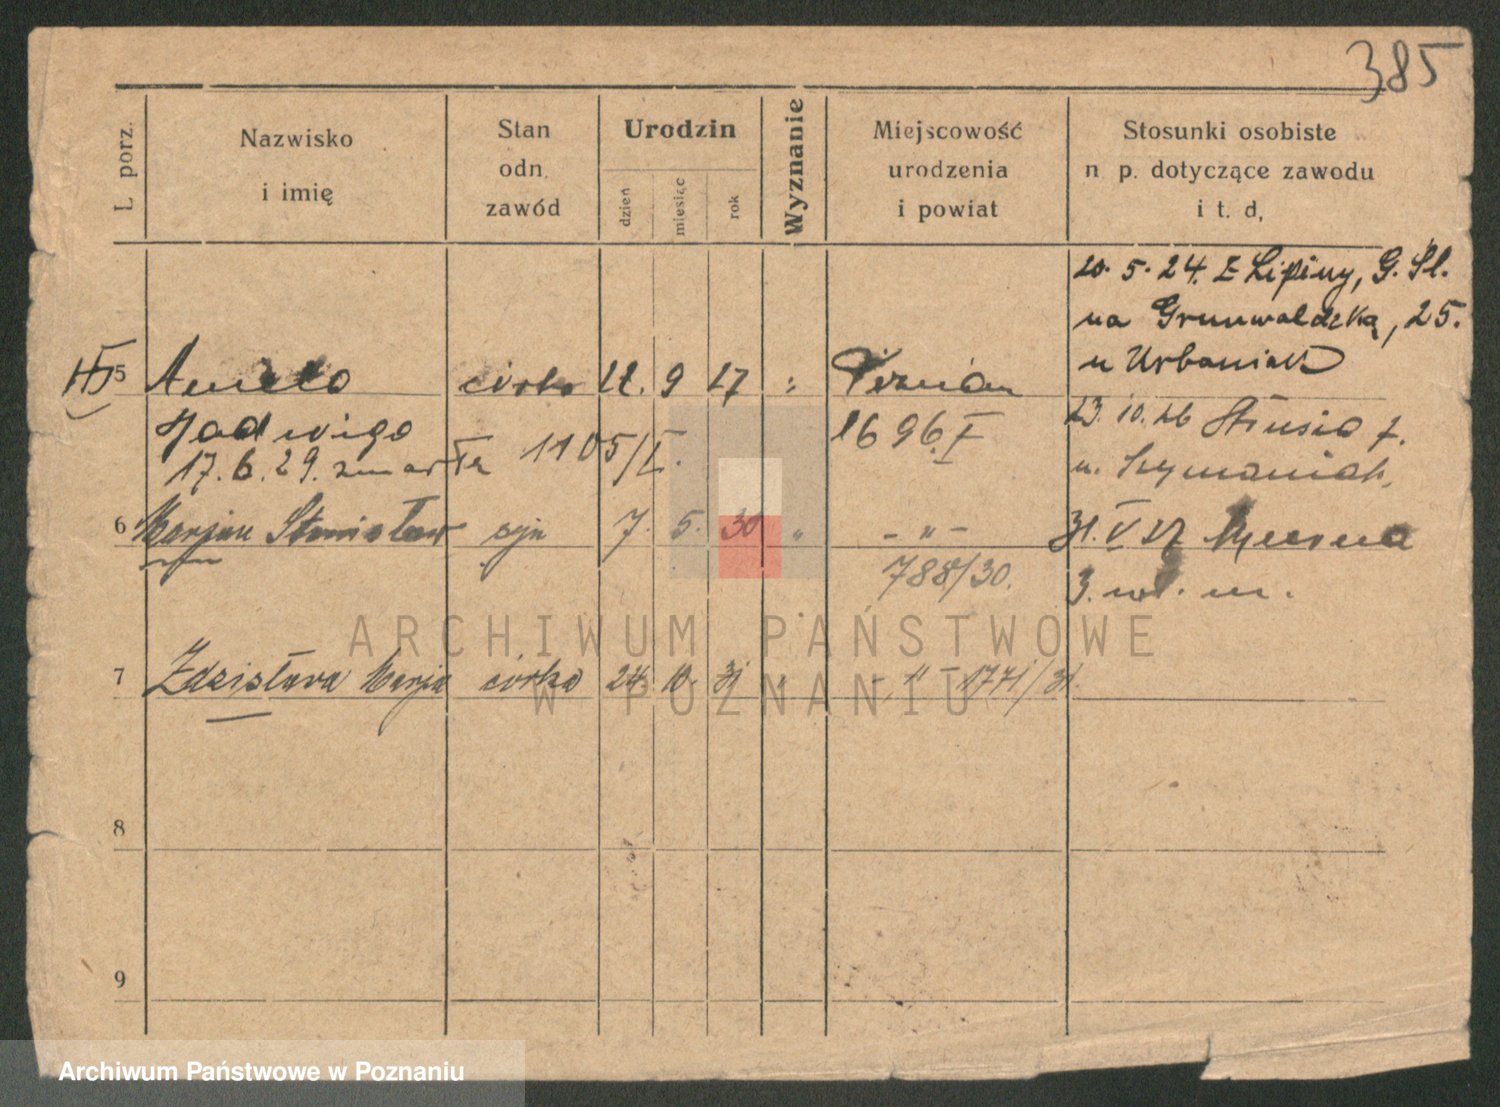 385
L. porz.
Nazwisko
i imię
Stan
odn.
zawód
Urodzin
dzień
miesiąc
rok
Wyznanie
Miejscowość
urodzenia
i powiat
Stosunki osobiste
n p. dotyczące zawodu
i t. d,
20. 5. 24. z Lipiny, G. Śl.
na Grunwaldzką, 25.
u Urbaniak
5 Aniela córka 9 17 " Poznań
Jadwiga
17. 6. 29. zmarła 1105/I.
1696. I
23. 10. 26
u. Szymaniak,
6 Marjan Stanisław syn 7. 5. 30 " - " -
788/30.
31. V
3. m.
7 Zdzisława Marja córka 24. 10. 31 " - " - 1771/31.
8
9
ARCHIWUM PAŃSTWOWE
W POZNANIU
Archiwum Państwowe w Poznaniu